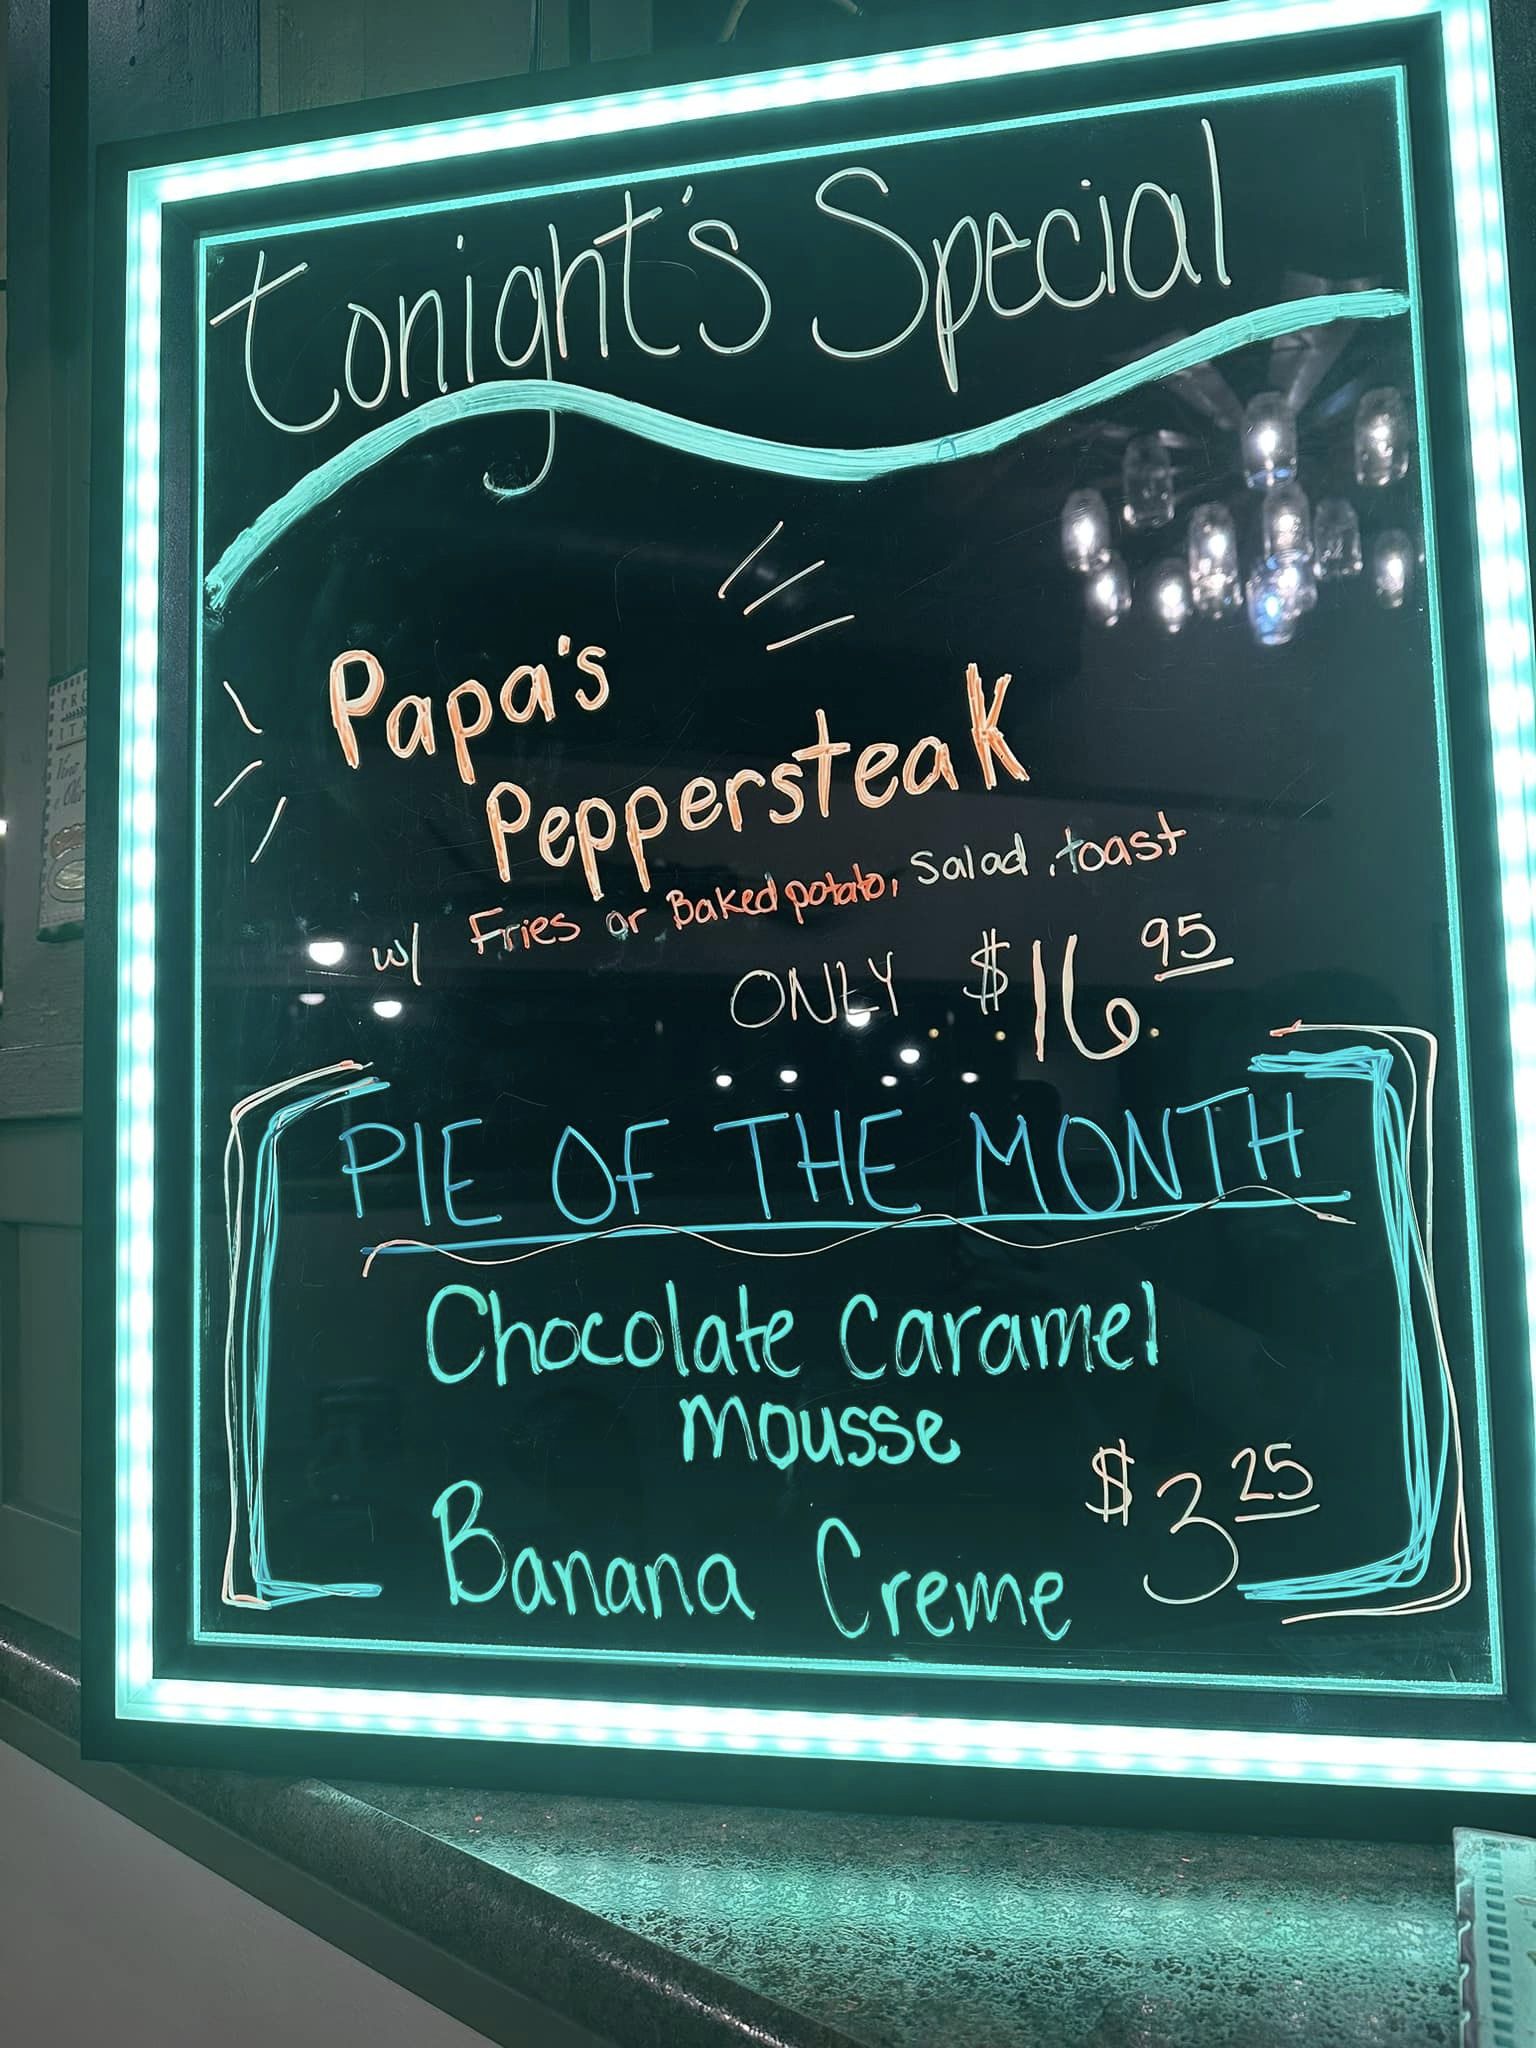 Tonight's Special
Papa's
Peppersteak
w/ Fries or Baked potato, Salad, toast
ONLY $16.95
PIE OF THE MONTH
Chocolate Caramel
mousse
Banana Creme
$3 25
PRO
ITA